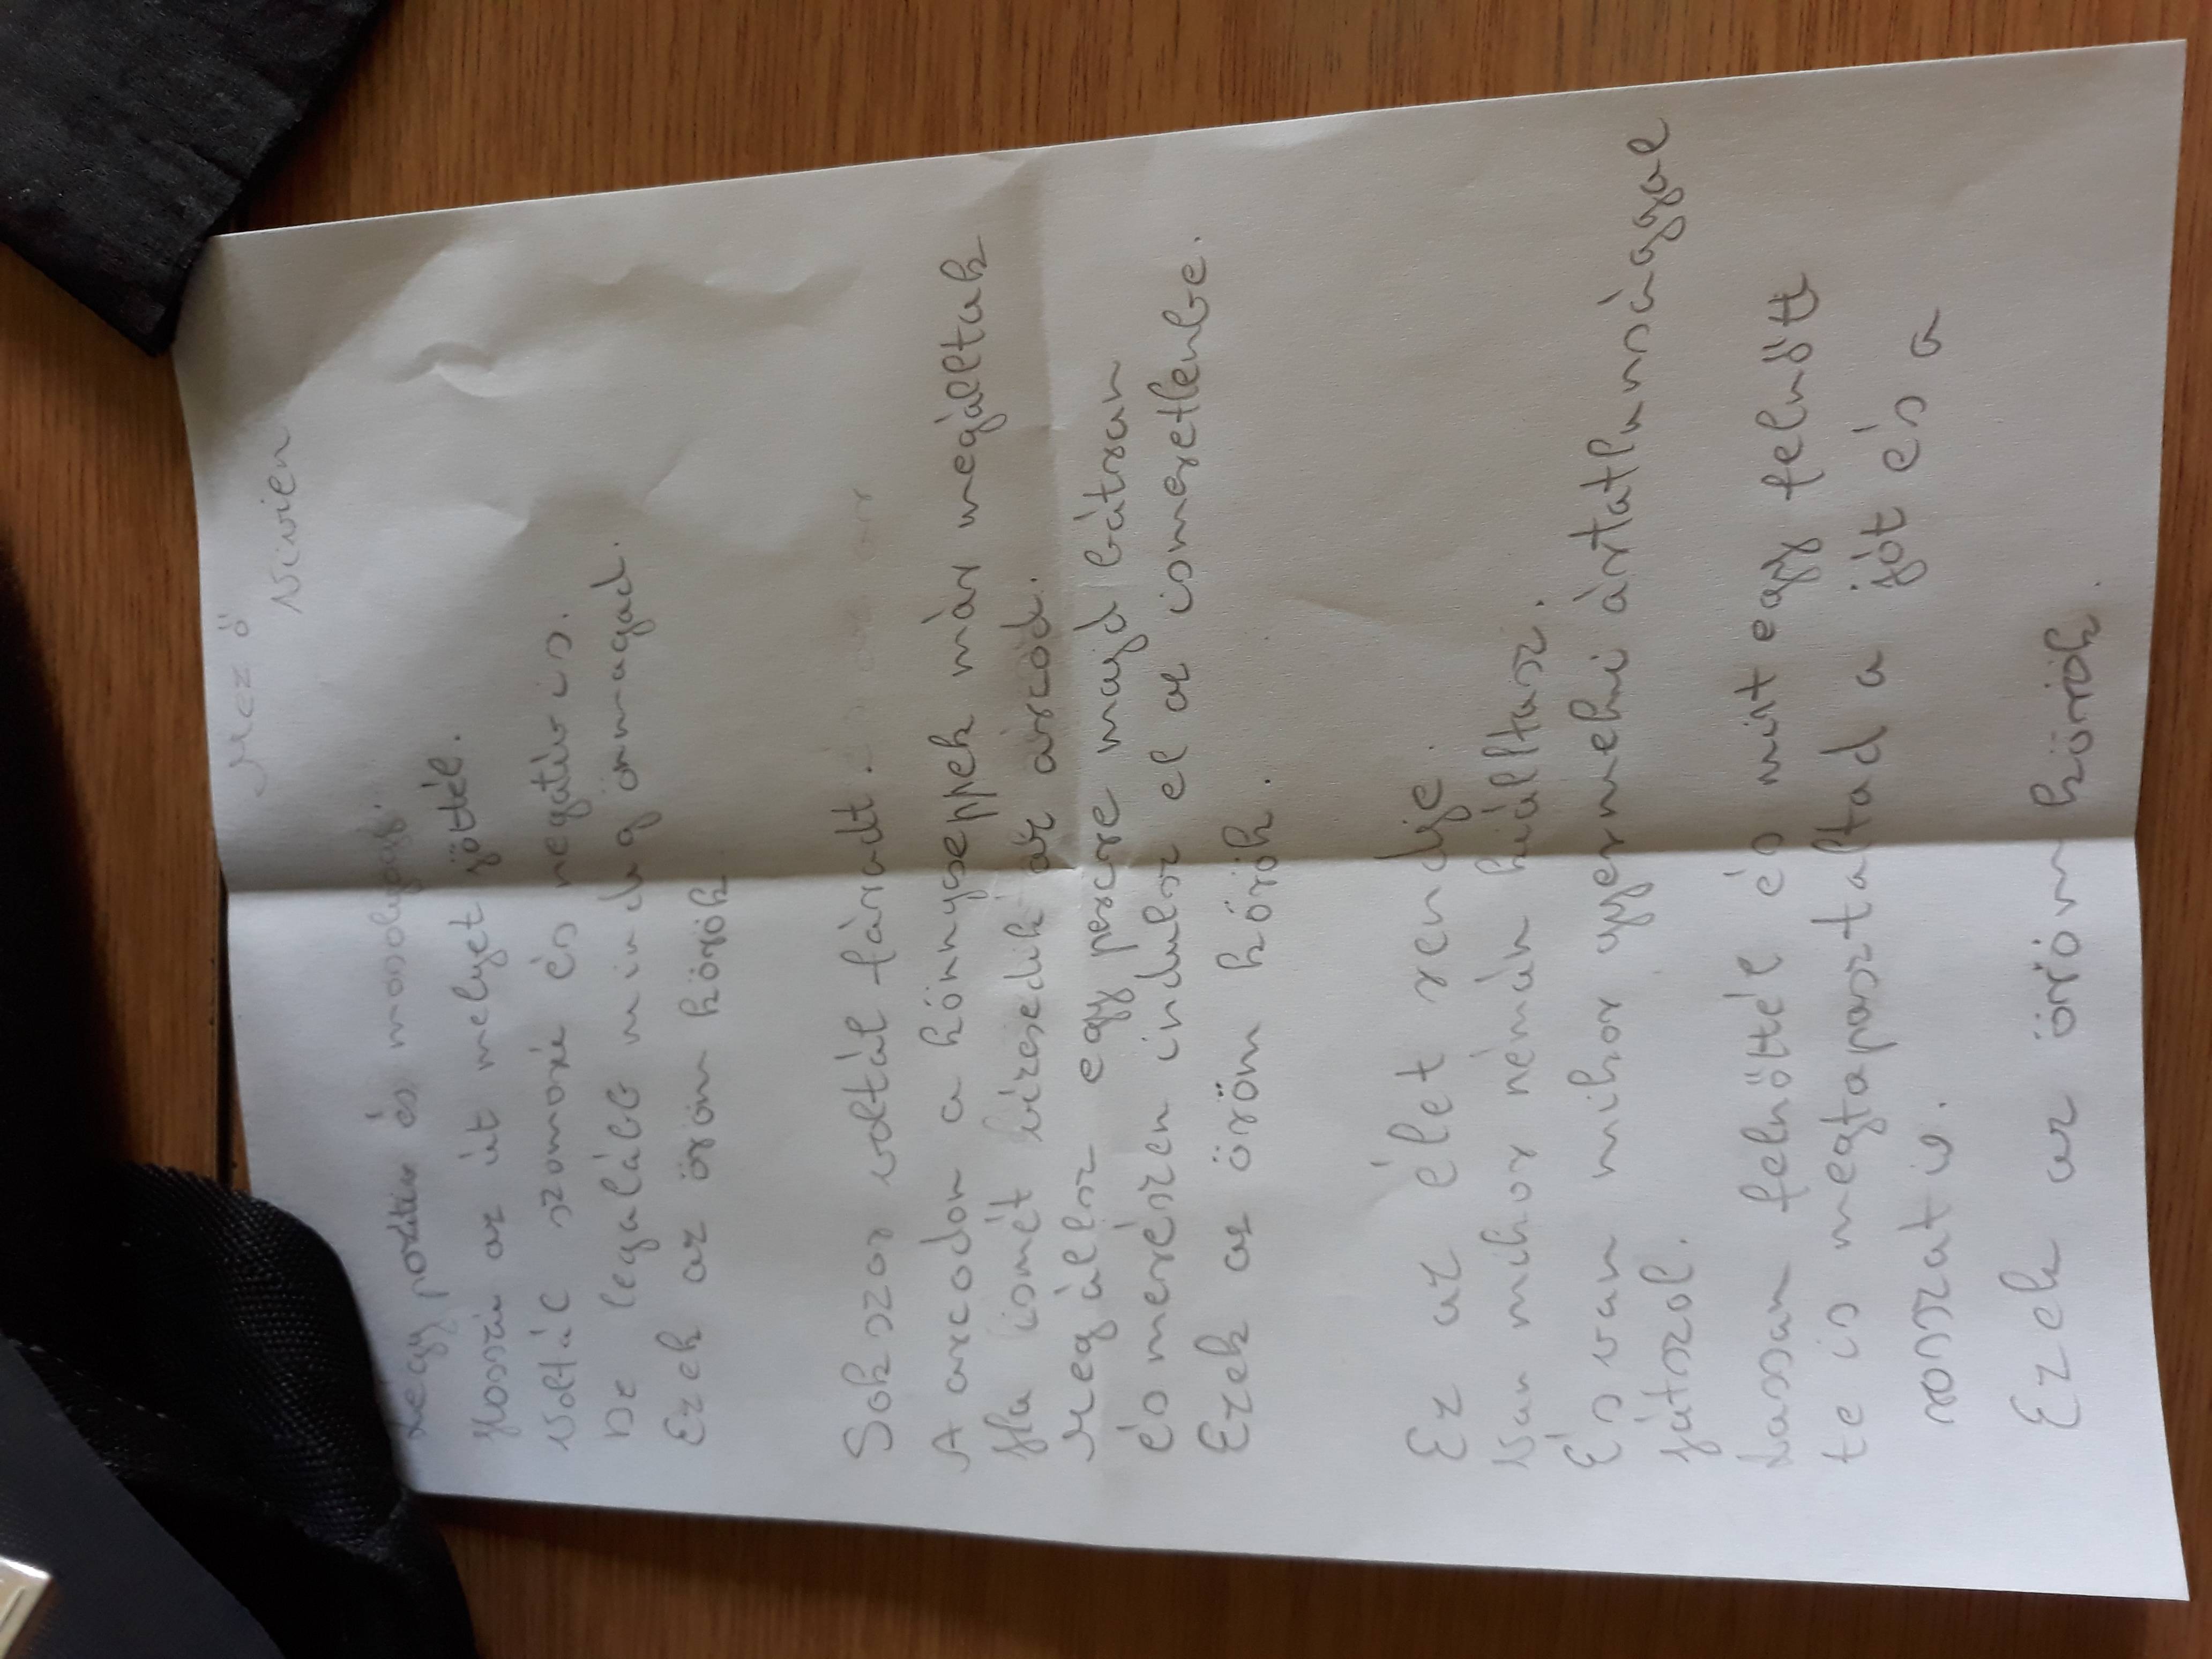 Mező
Vivien
Légy pozitív és mosolyogj.
Hosszú az út melyet jöttél.
Voltál szomorú és negatív is.
De legalább mindig önmagad.
Ezek az öröm körök
Sokszor voltál fáradt.
A arcodon a könnyseppek már megálltak
Ha ismét kiresedik az arcod.
Megállsz egy percre majd bátran
és merészen indulsz el az ismeretlenbe.
Ezek az öröm körök.
Ez az élet rendje.
Van mikor némán kiálltasz.
És van mikor gyermeki ártatlanságal
játszol.
Lassan felnöttél és mit egy felnőtt
te is megtapasztaltad a jót és a
rosszat is.
Ezek az öröm körök.